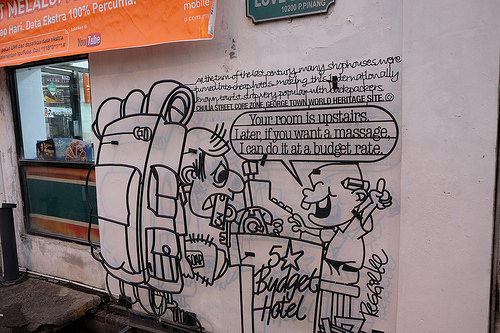 T MELALU
ap Hari. Data Ekstra 100% Percuma.
mobile
u.com.my
YouTube
10200 P.PINANG
At the turn of the last century, many shophouses were
turned into cheap hotels making this internationally
known tourist strip very popular with backpackers
CHULIA STREET CORE ZONE, GEORGE TOWN WORLD HERITAGE SITE
Your room is upstairs.
Later, if you want a massage,
I can do it at a budget rate.
SOAP
5☆
Budget
Hotel
Reggielee